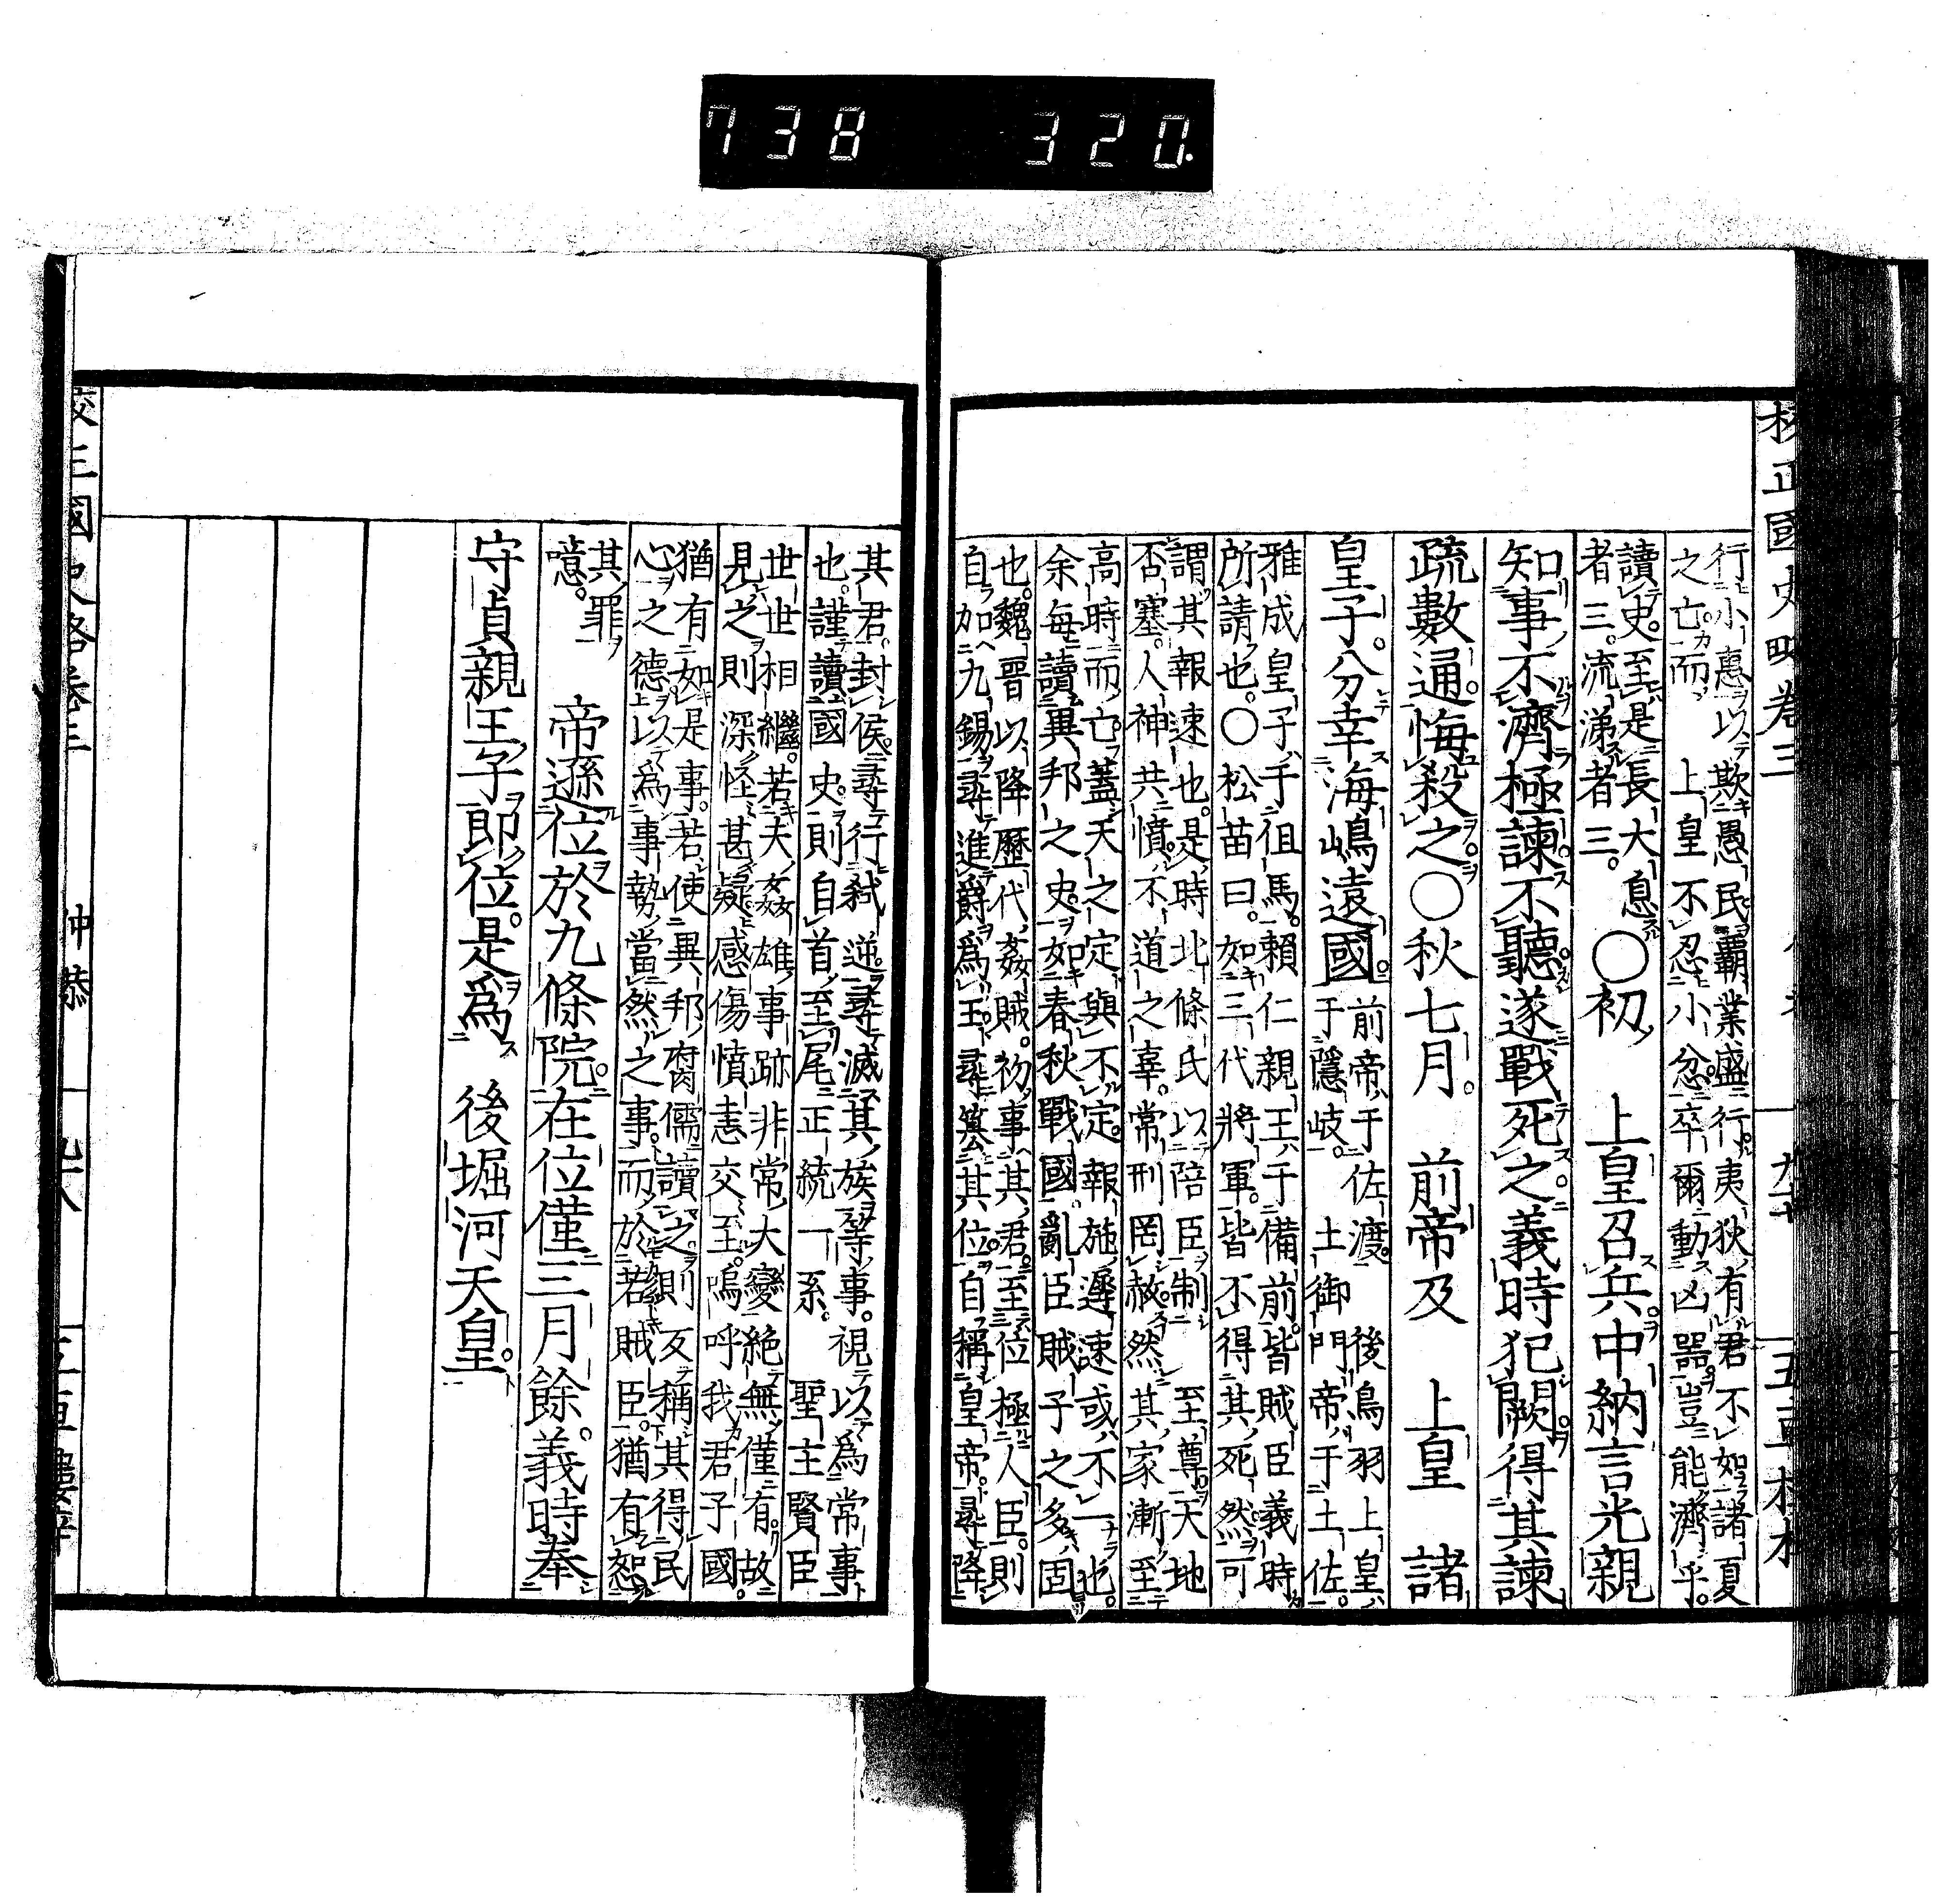 738 320.
校正國史略卷三
行小惠以欺愚民霸業盛行夷狄有君不如諸夏
之亡而 上皇不忍小忿卒爾動凶器豈能濟乎。
讀史。至是長大息
者三。流涕者三。
○初 上皇召兵中納言光親
知事不濟極諫不聽遂戰死之義時犯闕得其諫
疏數通悔殺之○秋七月 前帝及 上皇 諸
皇子。分幸海嶋遠國
前帝于佐渡 後鳥羽上皇
于隱岐。 土御門帝于土佐。
雅成皇子于但馬。賴仁親王于備前。皆賊臣義時
所請也。○松苗曰。如三代將軍。皆不得其死然可
謂其報速也。是時北條氏以陪臣制 至尊。天地
否塞。人神共憤不道之辜。常刑罔赦然其家漸至
高時而亡。蓋天之定與不定。報施遲速或不一也。
余每讀異邦之史。如春秋戰國亂臣賊子之多固
也。魏晉以降歷代姦賊。初事其君。至位極人臣。則
自加九錫尋進爵爲王尋簒其位。自稱皇帝。尋降
其君。封侯。尋行弑逆。尋滅其族等事。視以爲常事
也。謹讀國史。則自首至尾正統一系。 聖主賢臣
世世相繼。若夫姦雄事跡非常大變絶無僅有故
見之則深怪甚疑感傷憤恚交至。嗚呼我君子國。
猶有如是事。若使異邦腐儒讀之則反稱其得民
心之德以爲事勢當然之事。而於若賊臣。猶有恕
其罪
噫。
帝遜位於九條院。在位僅三月餘。義時奉
守貞親王子即位。是爲 後堀河天皇。
仲恭